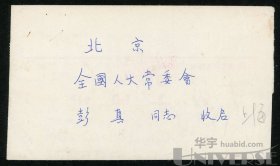 北 京
全國人大常委會
彭 真 同志 收启
华宇
huabid.com
UNIVERSE